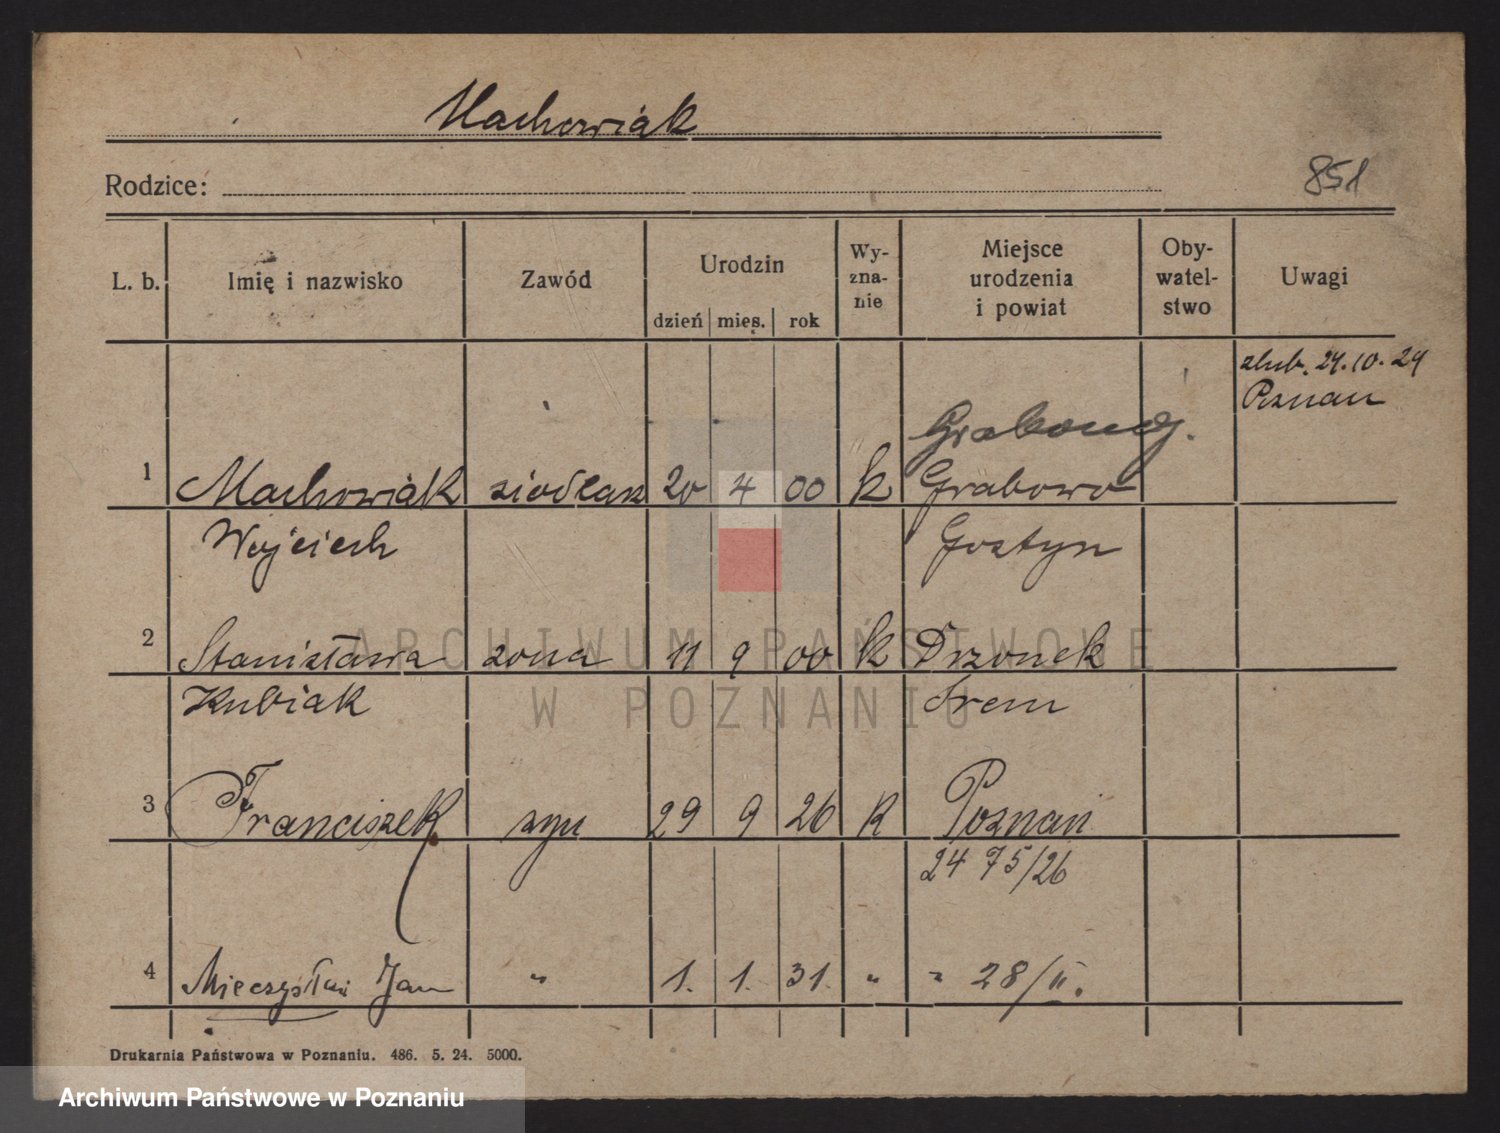 Machowiak
Rodzice:
851
L. b. Imię i nazwisko Zawód Urodzin dzień mies. rok Wy-zna-nie Miejsce urodzenia i powiat Oby-watel-stwo Uwagi
zlub. 24.10.24
Poznan
1 Machowiak siodlarz 20 4 00 k Grabowo
Wojciech Gostyn
2 Stanisława zona 11 9 00 k Drzonek
Kubiak Srem
3 Franciszek syn 29 9 26 k Poznań
2475/26
4 Mieczysław Jan " 1. 1. 31. " " 28/II.
Drukarnia Państwowa w Poznaniu. 486. 5. 24. 5000.
ARCHIWUM PAŃSTWOWE
W POZNANIU
Archiwum Państwowe w Poznaniu